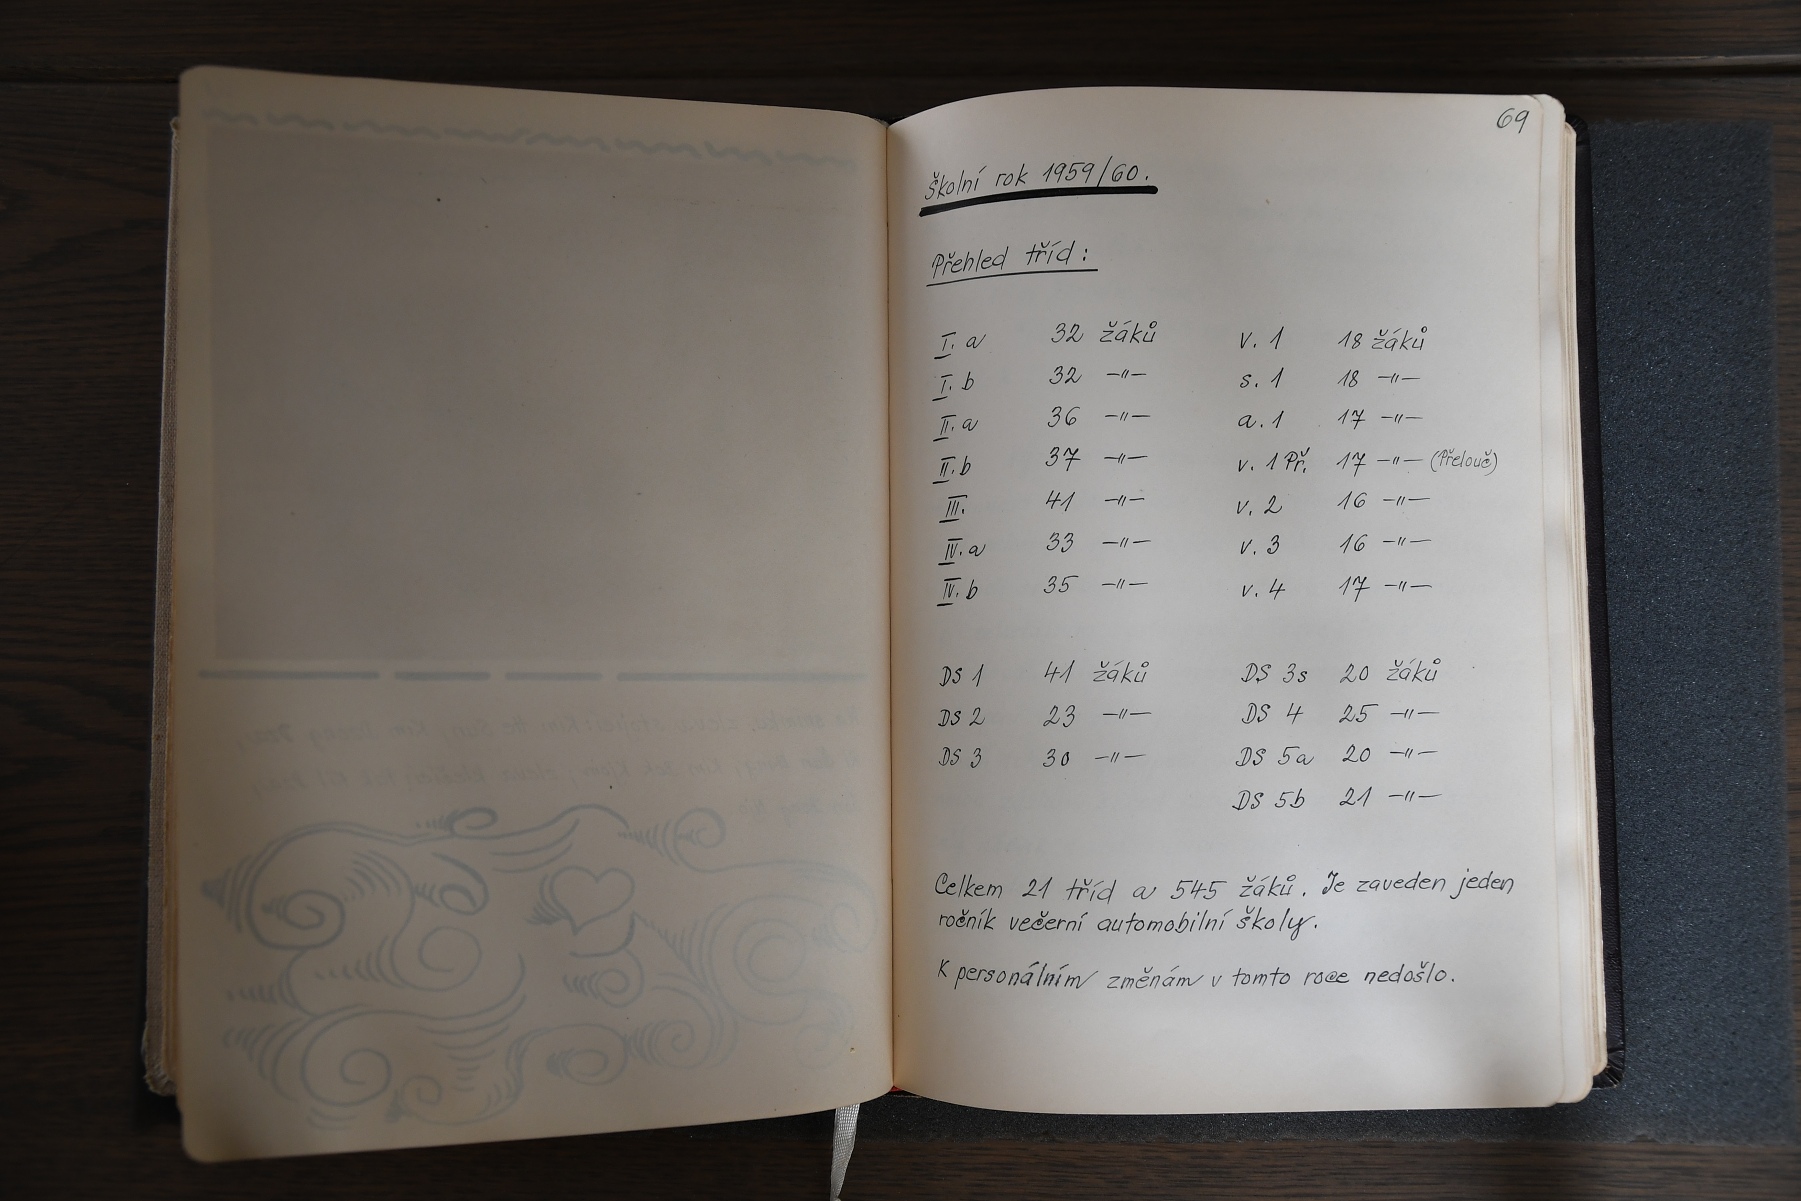 69
Školní rok 1959/60.
Přehled tříd:
I. a 32 žáků v. 1 18 žáků
I. b 32 –"– s. 1 18 –"–
II. a 36 –"– a. 1 17 –"–
II. b 37 –"– v. 1 Př. 17 –"– (Přelouč)
III. 41 –"– v. 2 16 –"–
IV. a 33 –"– v. 3 16 –"–
IV. b 35 –"– v. 4 17 –"–
DS 1 41 žáků DS 3s 20 žáků
DS 2 23 –"– DS 4 25 –"–
DS 3 30 –"– DS 5a 20 –"–
DS 5b 21 –"–
Celkem 21 tříd a 545 žáků. Je zaveden jeden
ročník večerní automobilní školy.
K personálním změnám v tomto roce nedošlo.